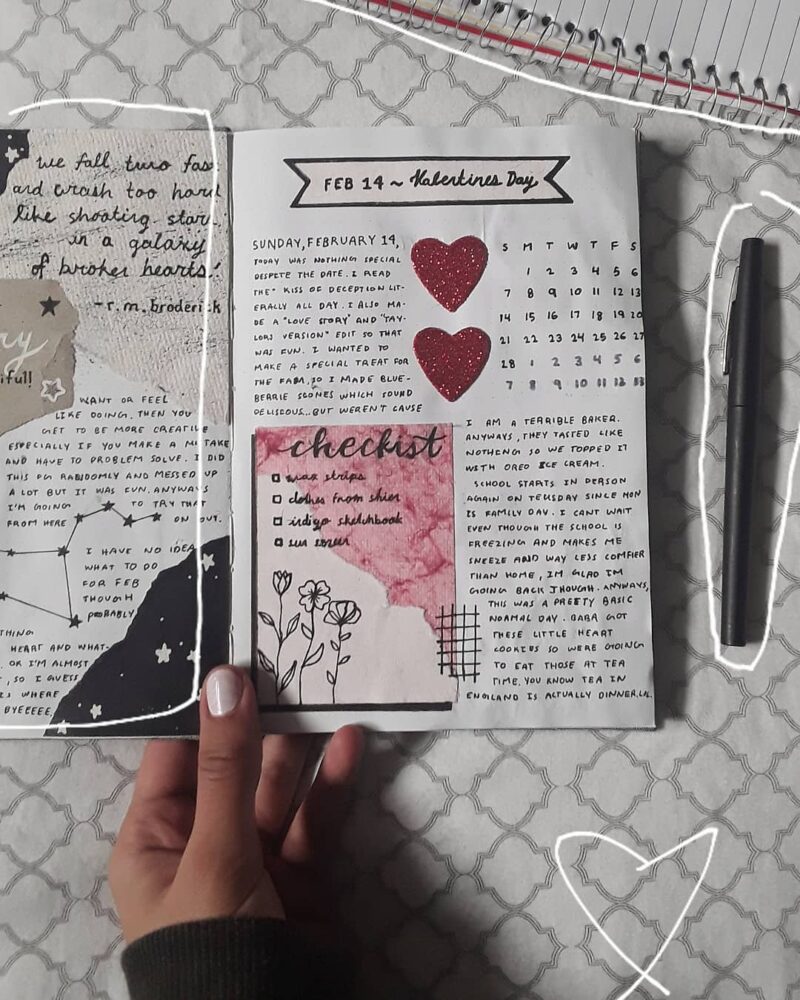 we fall two fas
and crash too hard
like shooting star
in a galaxy
of broken hearts!
-r.m.broderick
ry
iful!
WANT OR FEEL
LIKE DOING. THEN YOU
GET TO BE MORE CREATIVE
ESPECIALLY IF YOU MAKE A MISTAKE
AND HAVE TO PROBLEM SOLVE. I DID
THIS PG RANDOMLY AND MESSED UP
A LOT BUT IT WAS FUN. ANYWAYS
I'M GOING TO TRY THAT
FROM HERE ON OUT.
I HAVE NO IDEA
WHAT TO DO
FOR FEB
THOUGH
PROBABLY
THING
HEART AND WHAT-
. OK I'M ALMOST
, SO I GUESS
IS WHERE
BYEEEEE.
FEB 14 ~ Valentines Day
SUNDAY, FEBRUARY 14,
TODAY WAS NOTHING SPECIAL
DESPITE THE DATE. I READ
THE "KISS OF DECEPTION LIT-
ERALLY ALL DAY. I ALSO MA-
DE A "LOVE STORY" AND "TAY-
LORS VERSION" EDIT SO THAT
WAS FUN. I WANTED TO
MAKE A SPECIAL TREAT FOR
THE FAM, SO I MADE BLUE-
BERRIE SCONES WHICH SOUND
DELISCOUS...BUT WEREN'T CAUSE
S M T W T F S
1 2 3 4 5 6
7 8 9 10 11 12 13
14 15 16 17 18 19 20
21 22 23 24 25 26 27
28 1 2 3 4 5 6
7 8 9 10 11 12 13
checklist
wax strips
clothes from shien
indigo sketchbook
sun screen
I AM A TERRIBLE BAKER.
ANYWAYS, THEY TASTED LIKE
NOTHING SO WE TOPPED IT
WITH OREO ICE CREAM.
SCHOOL STARTS IN PERSON
AGAIN ON TEUSDAY SINCE MON
IS FAMILY DAY. I CANT WAIT
EVEN THOUGH THE SCHOOL IS
FREEZING AND MAKES ME
SNEEZE AND WAY LESS COMFIER
THAN HOME, IM GLAD IM
GOING BACK THOUGH. ANYWAYS,
THIS WAS A PREETY BASIC
NORMAL DAY. BABA GOT
THESE LITTLE HEART
COOKIES SO WERE GOING
TO EAT THOSE AT TEA
TIME. YOU KNOW TEA IN
ENGLAND IS ACTUALLY DINNER, LOL.